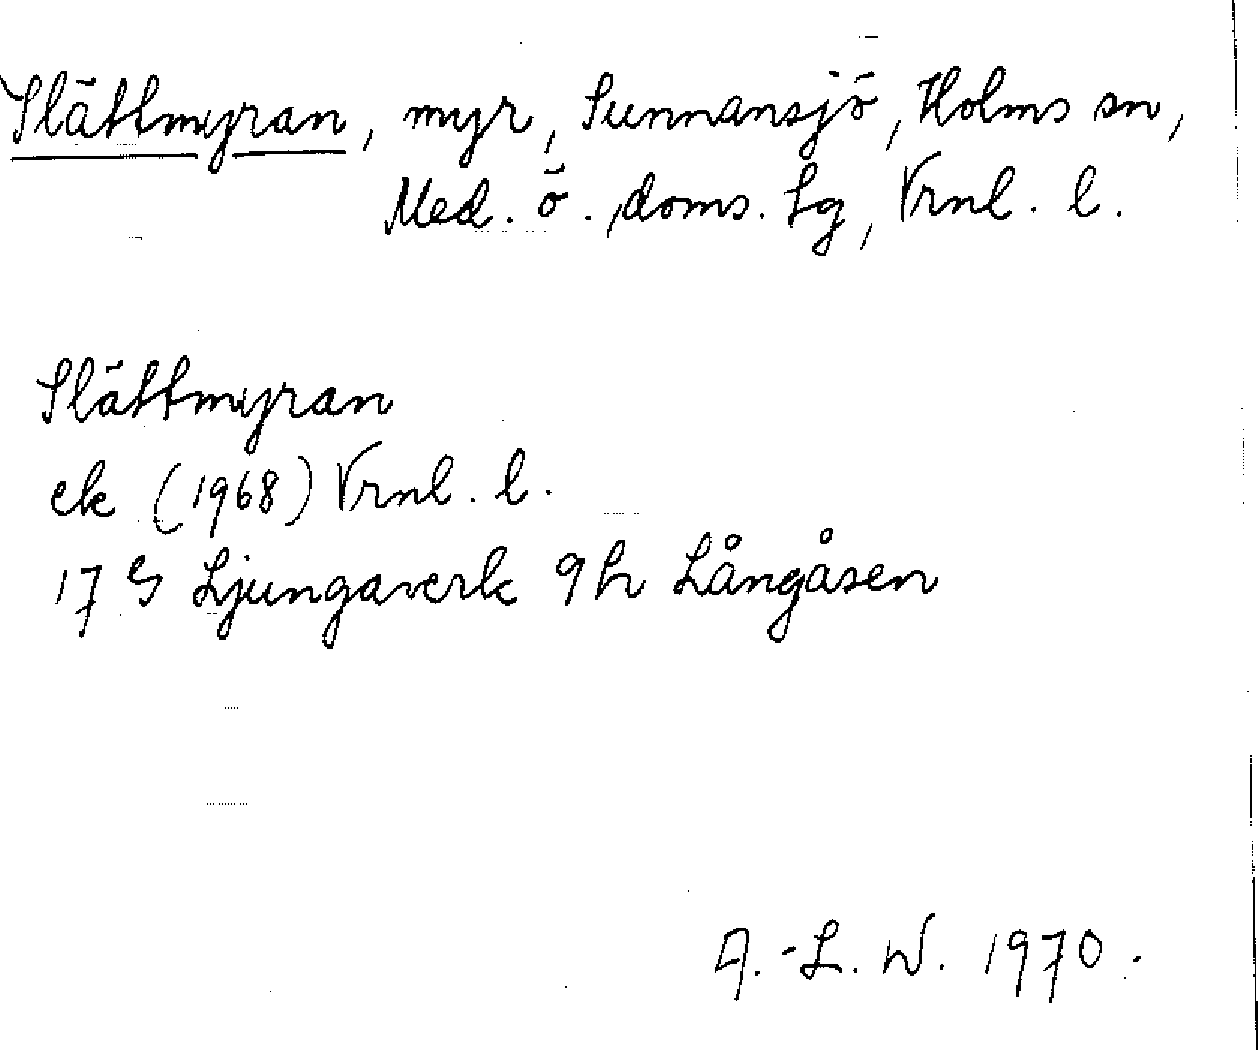 Slättmyran, myr, Sunnansjö, Holms sn,
Med. ö. doms. Lg, Vrnl. l.
Slättmyran
ek (1968) Vrnl. l.
17 G Ljungaverk 9h Långåsen
A.-L. W. 1970.